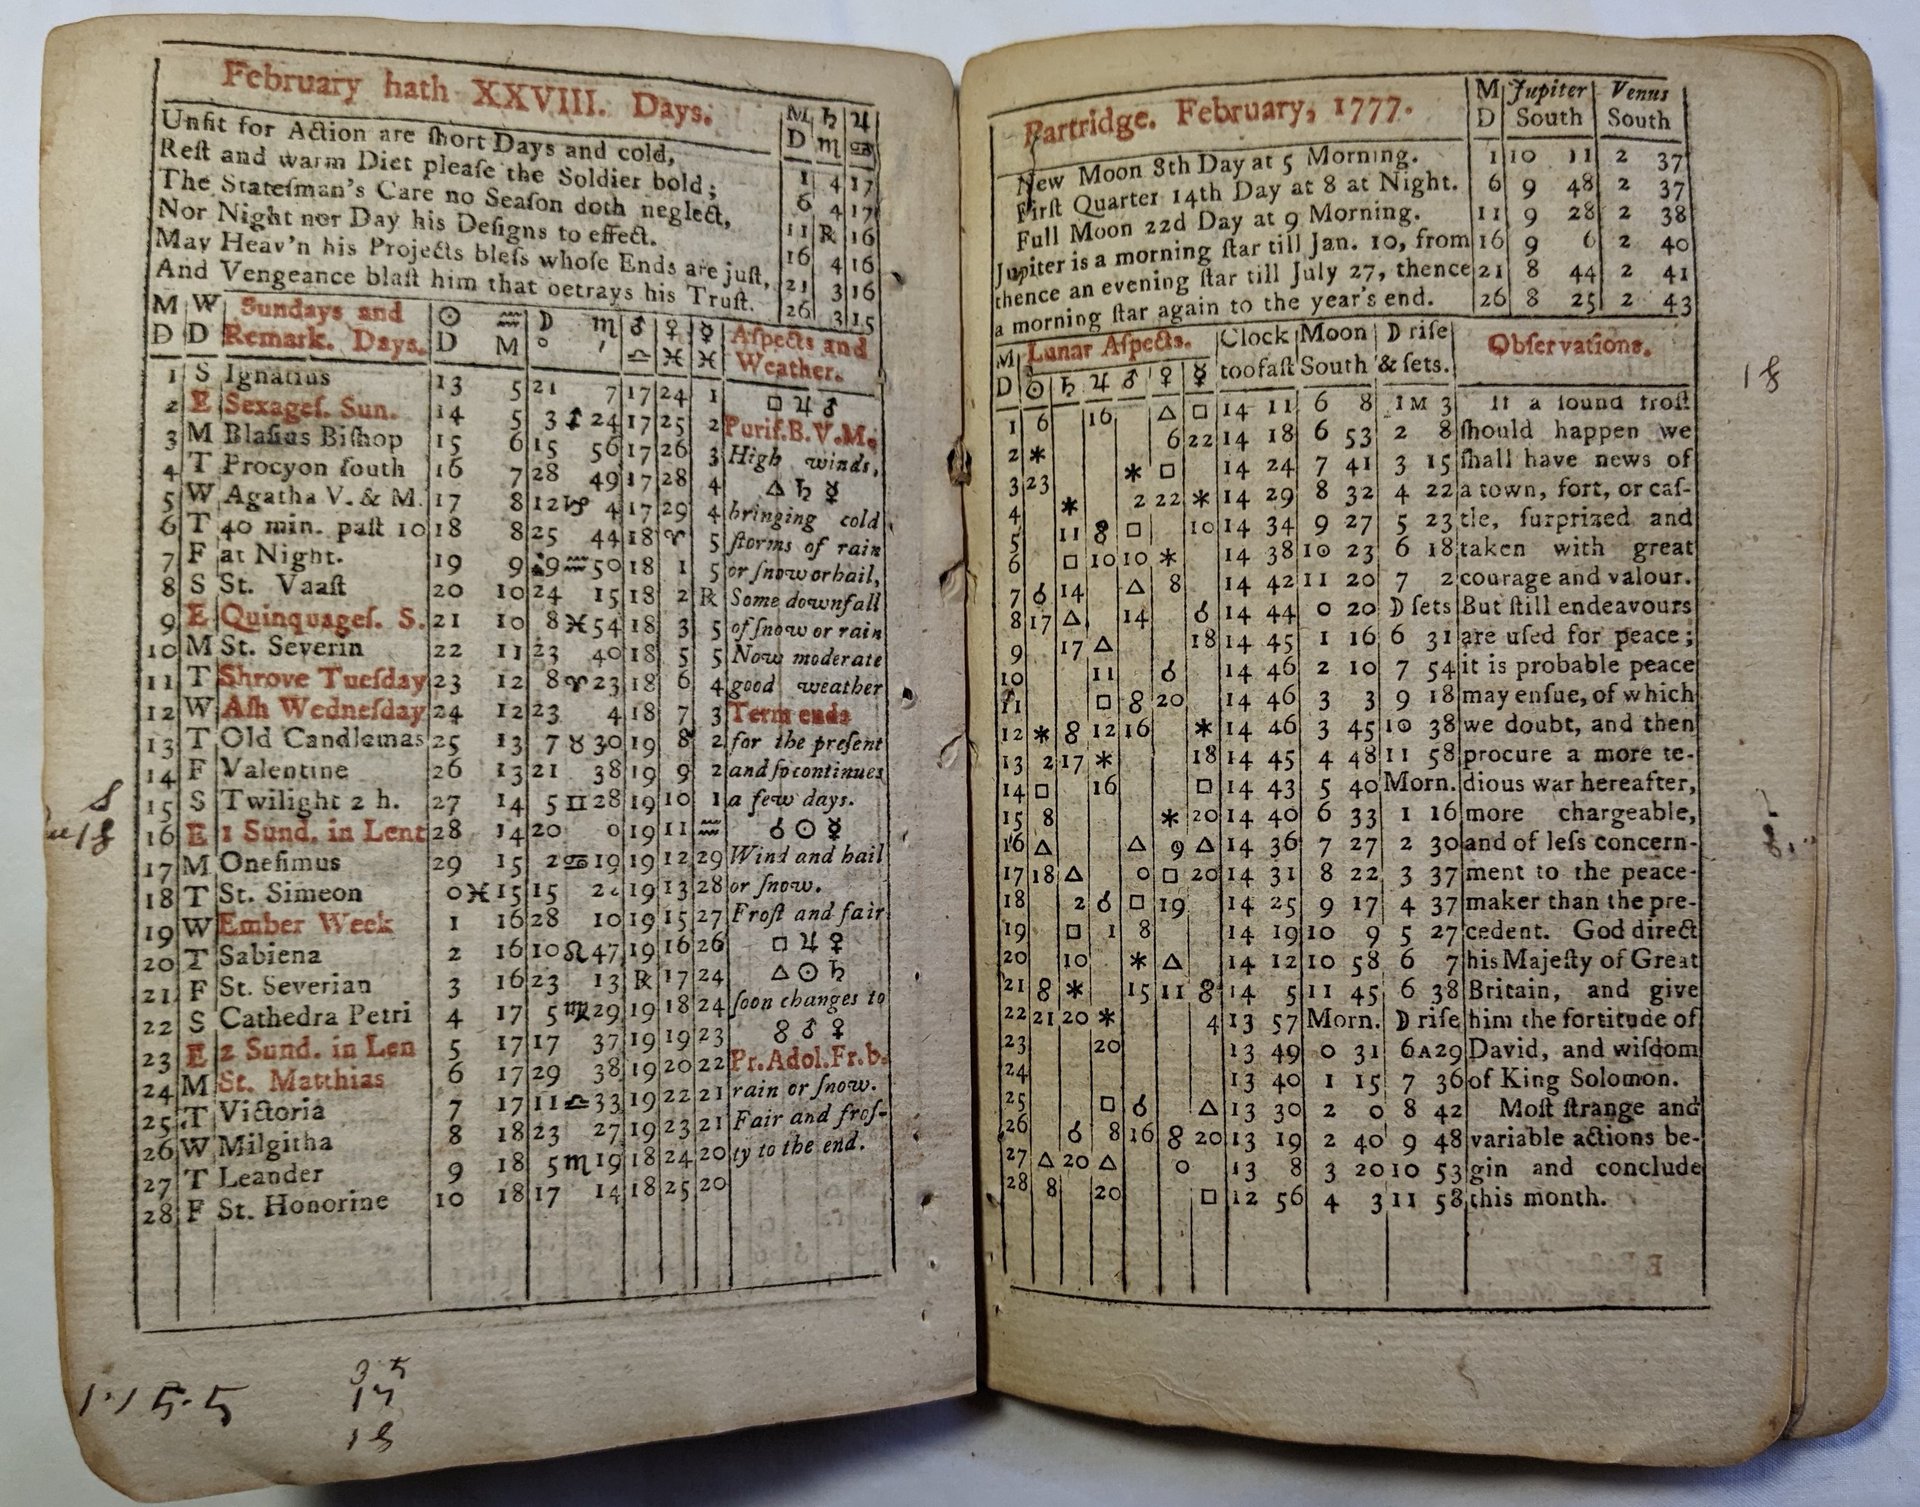 February hath XXVIII. Days.
M ♄ ♃
D ♏ ♋
Unfit for Action are ſhort Days and cold,
Reſt and warm Diet pleaſe the Soldier bold;
1 4 17
The Stateſman's Care no Seaſon doth neglect,
6 4 17
Nor Night nor Day his Deſigns to effect.
11 R 16
May Heav'n his Projects bleſs whoſe Ends are juſt,
16 4 16
And Vengeance blaſt him that betrays his Truſt.
21 3 16
26 3 15
M W Sundays and ☉ ♒ ☽ ♏ ♂ ♀ ☿ Aſpects and
D D Remark. Days. D M ° ′ ♎ ♓ ♓ Weather.
1 S Ignatius 13 5 21 7 17 24 1 □ ♃ ♂
2 E Sexageſ. Sun. 14 5 3 ♐ 24 17 25 2 Purif.B.V.M.
3 M Blaſius Biſhop 15 6 15 56 17 26 3 High winds,
4 T Procyon ſouth 16 7 28 49 17 28 4 △ ♄ ☿
5 W Agatha V. & M. 17 8 12 ♑ 4 17 29 4 bringing cold
6 T 40 min. paſt 10 18 8 25 44 18 ♈ 5 ſtorms of rain
7 F at Night. 19 9 9 ♒ 50 18 1 5 or ſnow or hail,
8 S St. Vaaſt 20 10 24 15 18 2 R Some downfall
9 E Quinquageſ. S. 21 10 8 ♓ 54 18 3 5 of ſnow or rain
10 M St. Severin 22 11 23 40 18 5 5 Now moderate
11 T Shrove Tueſday 23 12 8 ♈ 23 18 6 4 good weather
12 W Aſh Wedneſday 24 12 23 4 18 7 3 Term ends
13 T Old Candlemas 25 13 7 ♉ 30 19 8 2 for the preſent
14 F Valentine 26 13 21 38 19 9 2 and ſo continues
15 S Twilight 2 h. 27 14 5 ♊ 28 19 10 1 a few days.
16 E 1 Sund. in Lent 28 14 20 0 19 11 ♒ ☌ ☉ ☿
17 M Oneſimus 29 15 2 ♋ 19 19 12 29 Wind and hail
18 T St. Simeon 0 ♓ 15 15 19 13 28 or ſnow.
19 W Ember Week 1 16 28 10 19 15 27 Froſt and fair
20 T Sabiena 2 16 10 ♌ 47 19 16 26 □ ♃ ♀
21 F St. Severian 3 16 23 13 R 17 24 △ ☉ ♄
22 S Cathedra Petri 4 17 5 ♍ 29 19 18 24 ſoon changes to
23 E 2 Sund. in Len 5 17 17 37 19 19 23 ☍ ♂ ♀
24 M St. Matthias 6 17 29 38 19 20 22 Pr.Adol.Fr.b.
25 T Victoria 7 17 11 ♎ 33 19 22 21 rain or ſnow.
26 W Milgitha 8 18 23 27 19 23 21 Fair and froſ-
27 T Leander 9 18 5 ♏ 19 18 24 20 ty to the end.
28 F St. Honorine 10 18 17 14 18 25 20
18
17
18
Partridge. February, 1777.
M Jupiter Venus
D South South
New Moon 8th Day at 5 Morning.
1 10 11 2 37
Firſt Quarter 14th Day at 8 at Night.
6 9 48 2 37
Full Moon 22d Day at 9 Morning.
11 9 28 2 38
Jupiter is a morning ſtar till Jan. 10, from
16 9 6 2 40
thence an evening ſtar till July 27, thence
21 8 44 2 41
a morning ſtar again to the year's end.
26 8 25 2 43
M Lunar Aſpects. Clock Moon ☽ riſe Obſervations.
D ☉ ♄ ♃ ♂ ♀ ☿ too faſt South & ſets.
1 6 16 △ □ 14 11 6 8 1 M 3 If a ſound froſt
2 ✶ 6 22 14 18 6 53 2 8 ſhould happen we
3 23 ✶ □ 14 24 7 41 3 15 ſhall have news of
4 ✶ 2 22 ✶ 14 29 8 32 4 22 a town, fort, or caſ-
5 11 ☍ □ 10 14 34 9 27 5 23 tle, ſurprized and
6 □ 10 10 ✶ 14 38 10 23 6 18 taken with great
7 ☌ 14 △ 8 14 42 11 20 7 2 courage and valour.
8 17 △ 14 ☌ 14 44 0 20 ☽ ſets But ſtill endeavours
9 17 △ 18 14 45 1 16 6 31 are uſed for peace;
10 11 ☌ 14 46 2 10 7 54 it is probable peace
11 □ ☍ 20 14 46 3 3 9 18 may enſue, of which
12 ✶ ☍ 12 16 ✶ 14 46 3 45 10 38 we doubt, and then
13 2 17 ✶ 18 14 45 4 48 11 58 procure a more te-
14 □ 16 □ 14 43 5 40 Morn. dious war hereafter,
15 8 ✶ 20 14 40 6 33 1 16 more chargeable,
16 △ △ 9 △ 14 36 7 27 2 30 and of leſs concern-
17 18 △ 0 □ 20 14 31 8 22 3 37 ment to the peace-
18 2 ☌ □ 19 14 25 9 17 4 37 maker than the pre-
19 □ 1 8 14 19 10 9 5 27 cedent. God direct
20 10 ✶ △ 14 12 10 58 6 7 his Majeſty of Great
21 ☍ ✶ 15 11 ☍ 14 5 11 45 6 38 Britain, and give
22 21 20 ✶ 4 13 57 Morn. ☽ riſe him the fortitude of
23 20 13 49 0 31 6 A 29 David, and wiſdom
24 13 40 1 15 7 36 of King Solomon.
25 □ ☌ △ 13 30 2 0 8 42 Moſt ſtrange and
26 ☌ 8 16 ☍ 20 13 19 2 40 9 48 variable actions be-
27 △ 20 △ 0 13 8 3 20 10 53 gin and conclude
28 8 20 □ 12 56 4 3 11 58 this month.
18